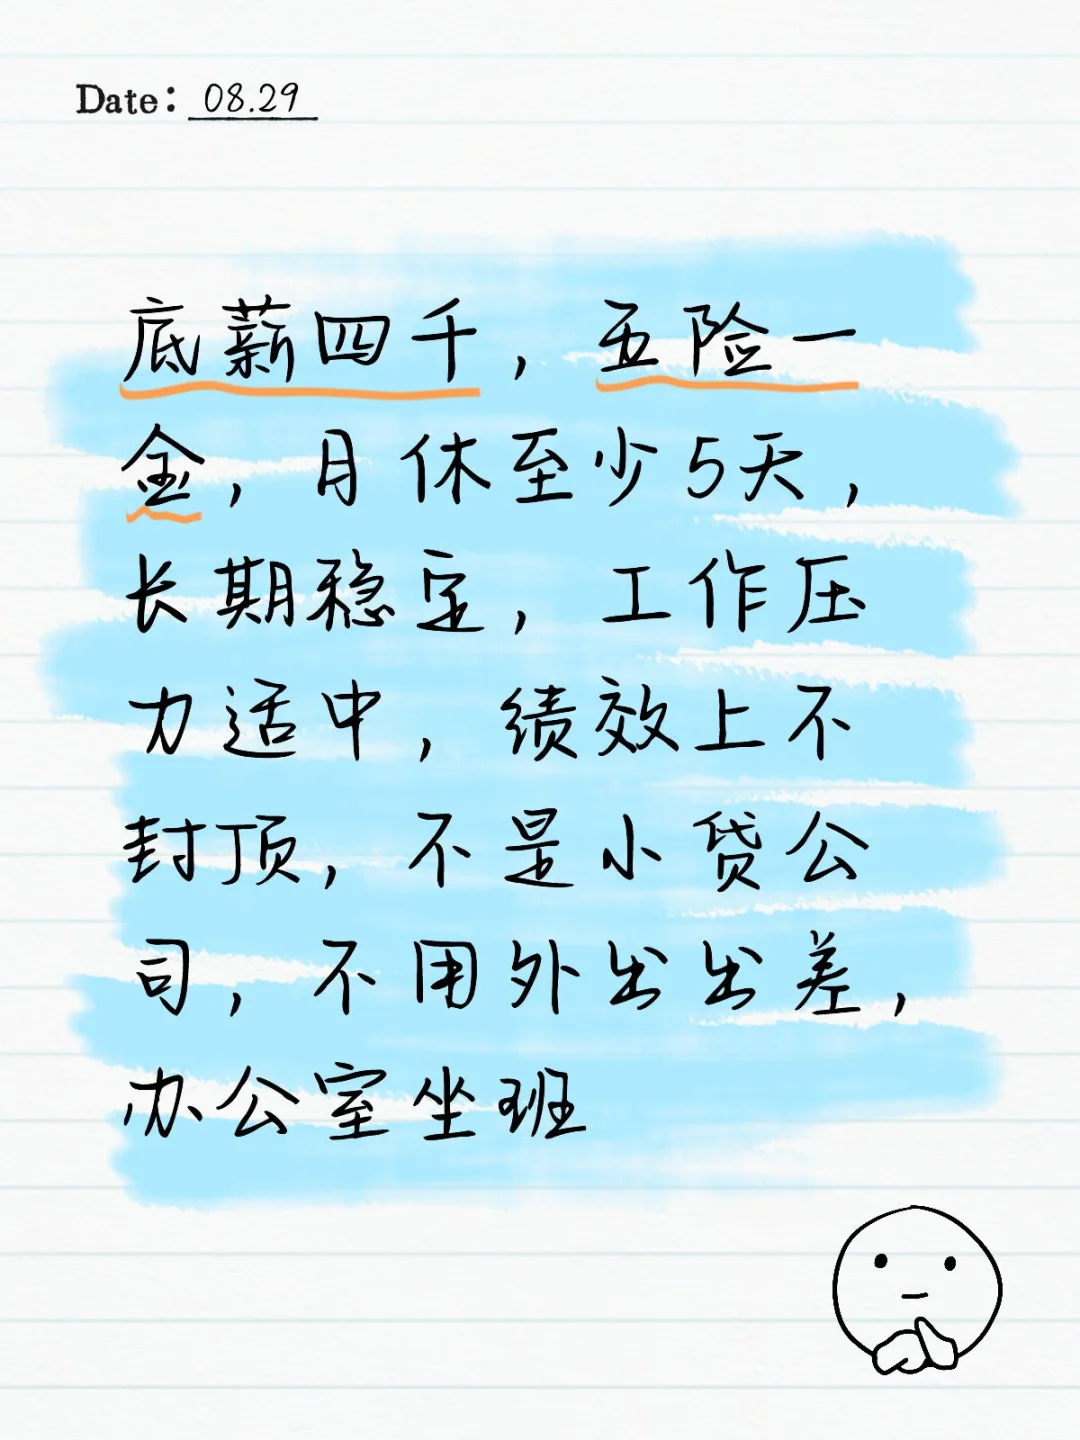 Date: 08.29
底薪四千，五险一
金，月休至少5天，
长期稳定，工作压
力适中，绩效上不
封顶，不是小贷公
司，不用外出出差，
办公室坐班